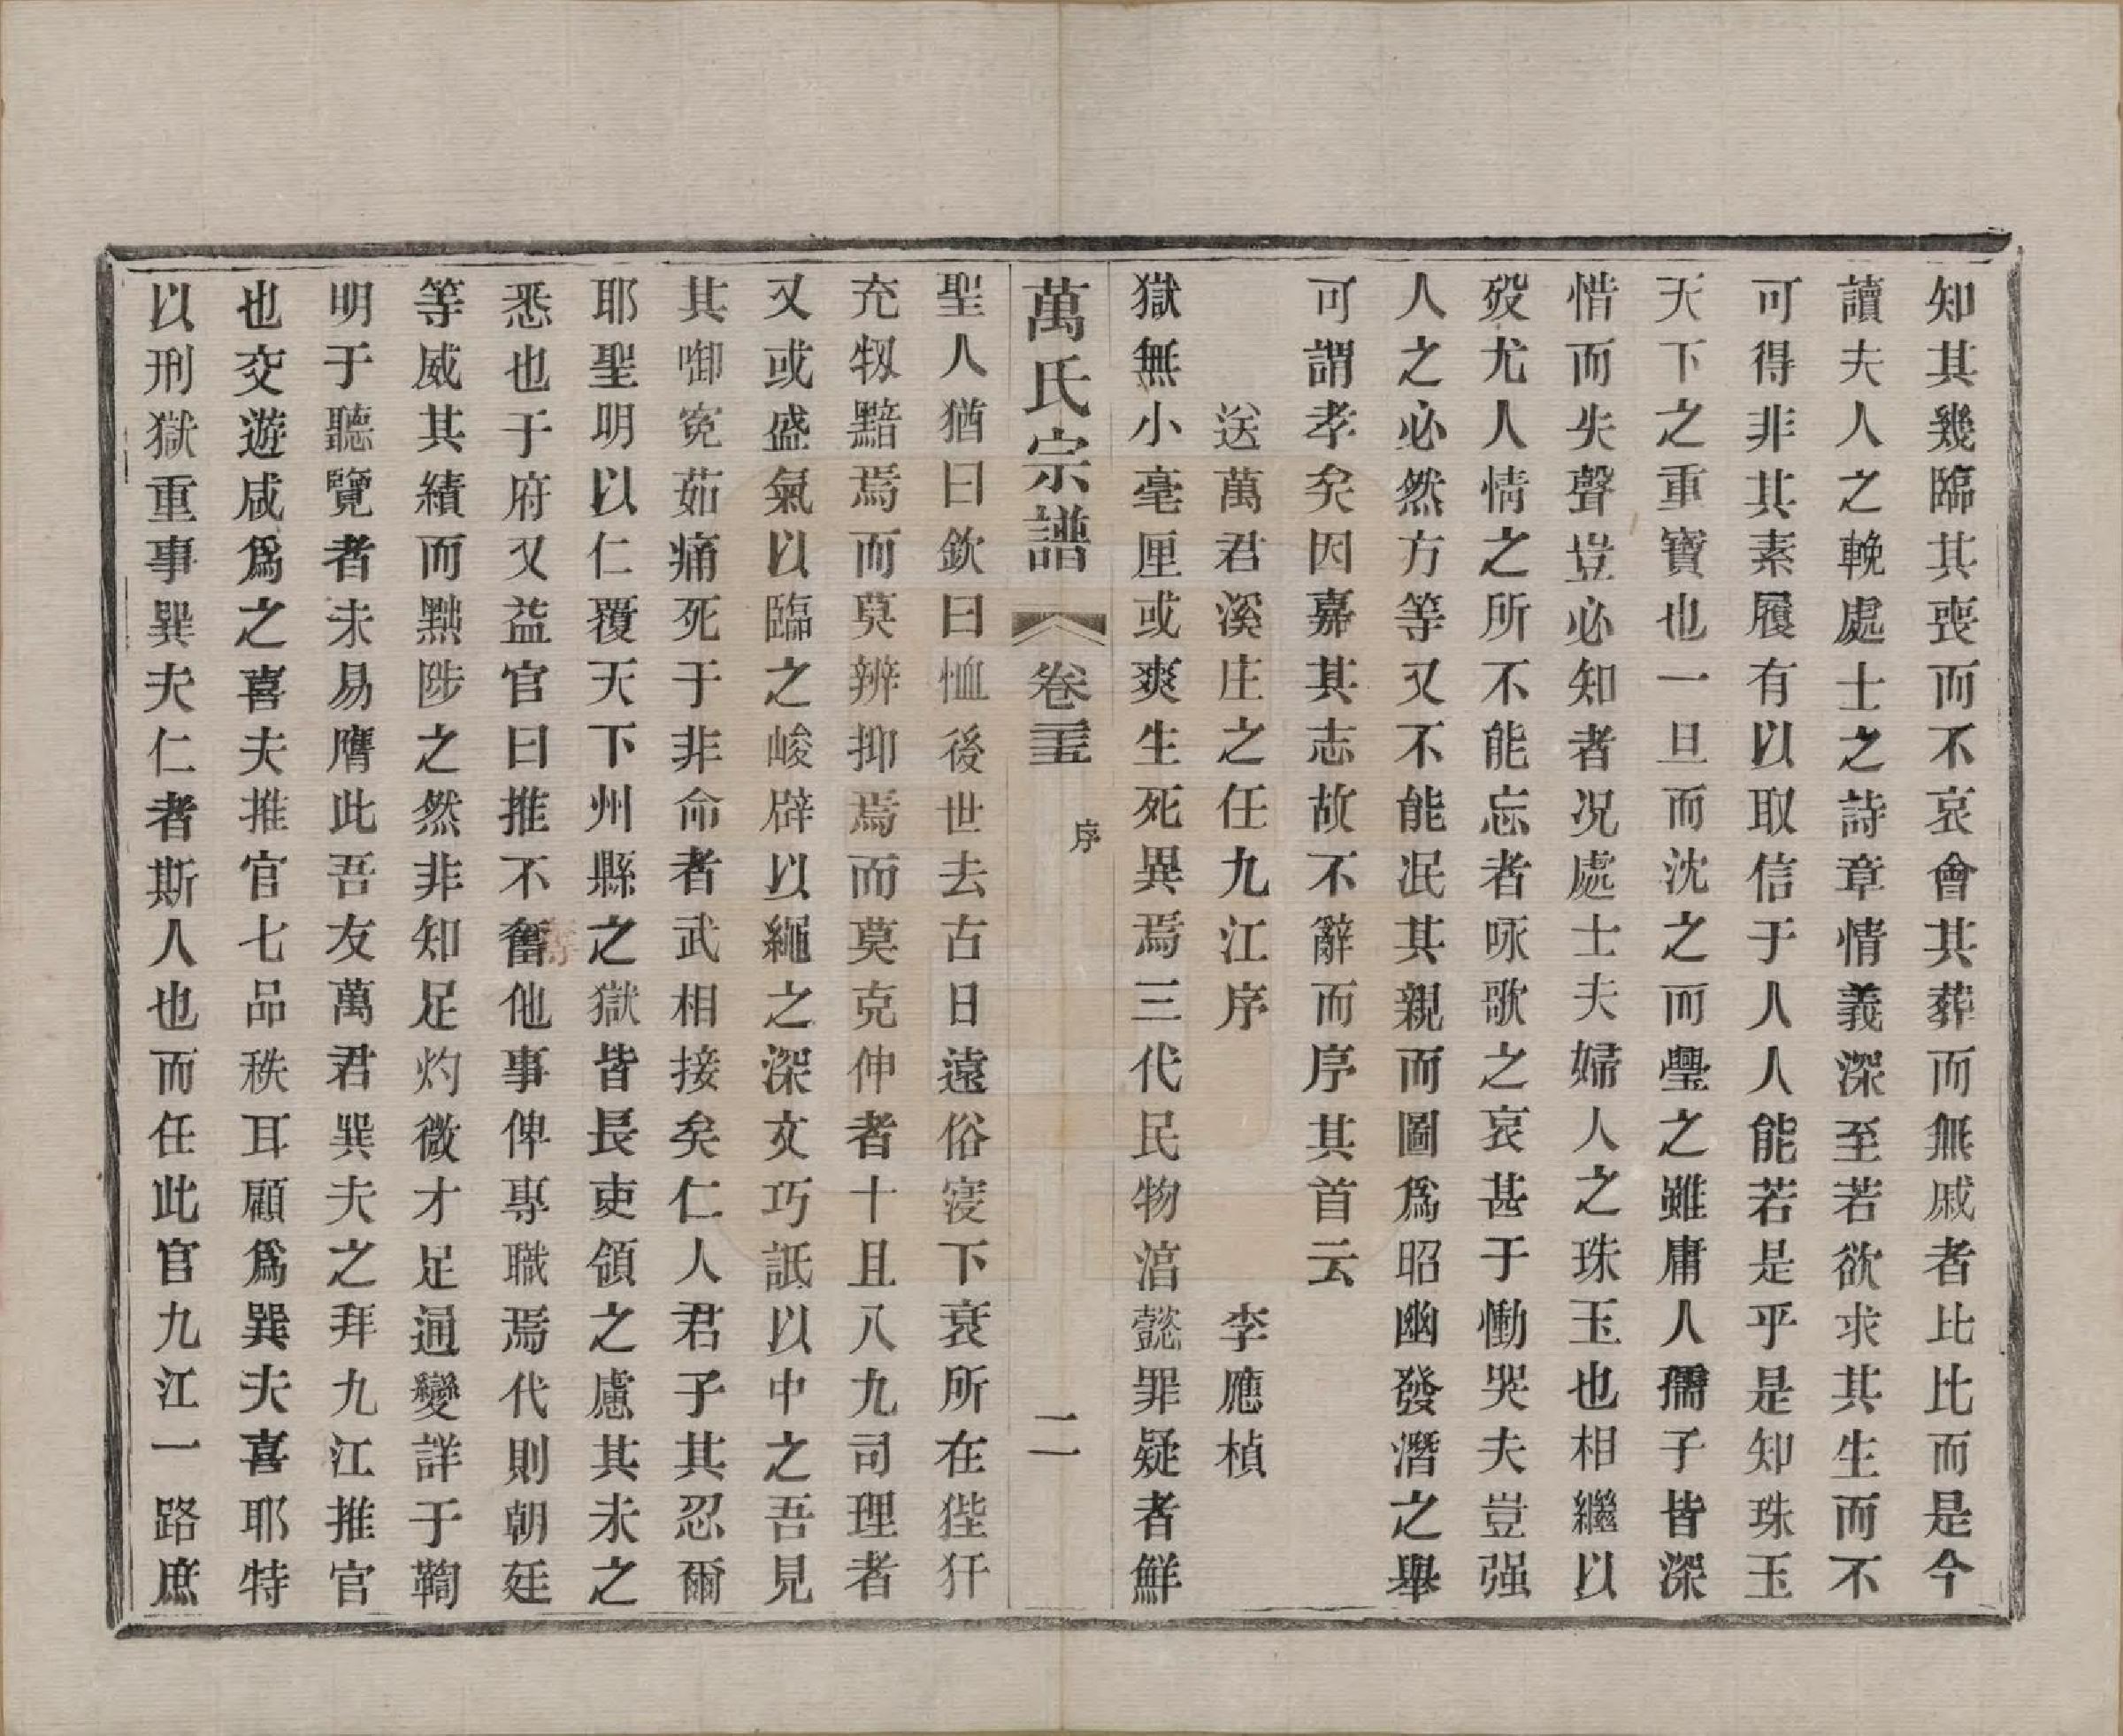 知其幾臨其喪而不哀會其葬而無戚者比比而是今
讀夫人之輓處士之詩章情義深至若欲求其生而不
可得非其素履有以取信于人人能若是乎是知珠玉
天下之重寶也一旦而沈之而璺之雖庸人孺子皆深
惜而失聲豈必知者况處士夫婦人之珠玉也相繼以
歿尤人情之所不能忘者咏歌之哀甚于慟哭夫豈强
人之必然方等又不能泯其親而圖爲昭幽發潛之舉
可謂孝矣因嘉其志故不辭而序其首云
送萬君溪庄之任九江序 李應楨
獄無小毫厘或爽生死異焉三代民物湻懿罪疑者鮮
萬氏宗譜 卷三五 序 二
聖人猶曰欽曰恤後世去古日遠俗寖下衰所在狴犴
充牣黯焉而莫辨抑焉而莫克伸者十且八九司理者
又或盛氣以臨之峻辟以繩之深文巧詆以中之吾見
其啣寃茹痛死于非命者武相接矣仁人君子其忍爾
耶聖明以仁覆天下州縣之獄皆長吏領之慮其未之
悉也于府又益官曰推不舊他事俾專職焉代則朝廷
等威其績而黜陟之然非知足灼微才足通變詳于鞫
明于聽覽者未易膺此吾友萬君巽夫之拜九江推官
也交遊咸爲之喜夫推官七品秩耳顧爲巽夫喜耶特
以刑獄重事巽夫仁者斯人也而任此官九江一路庶